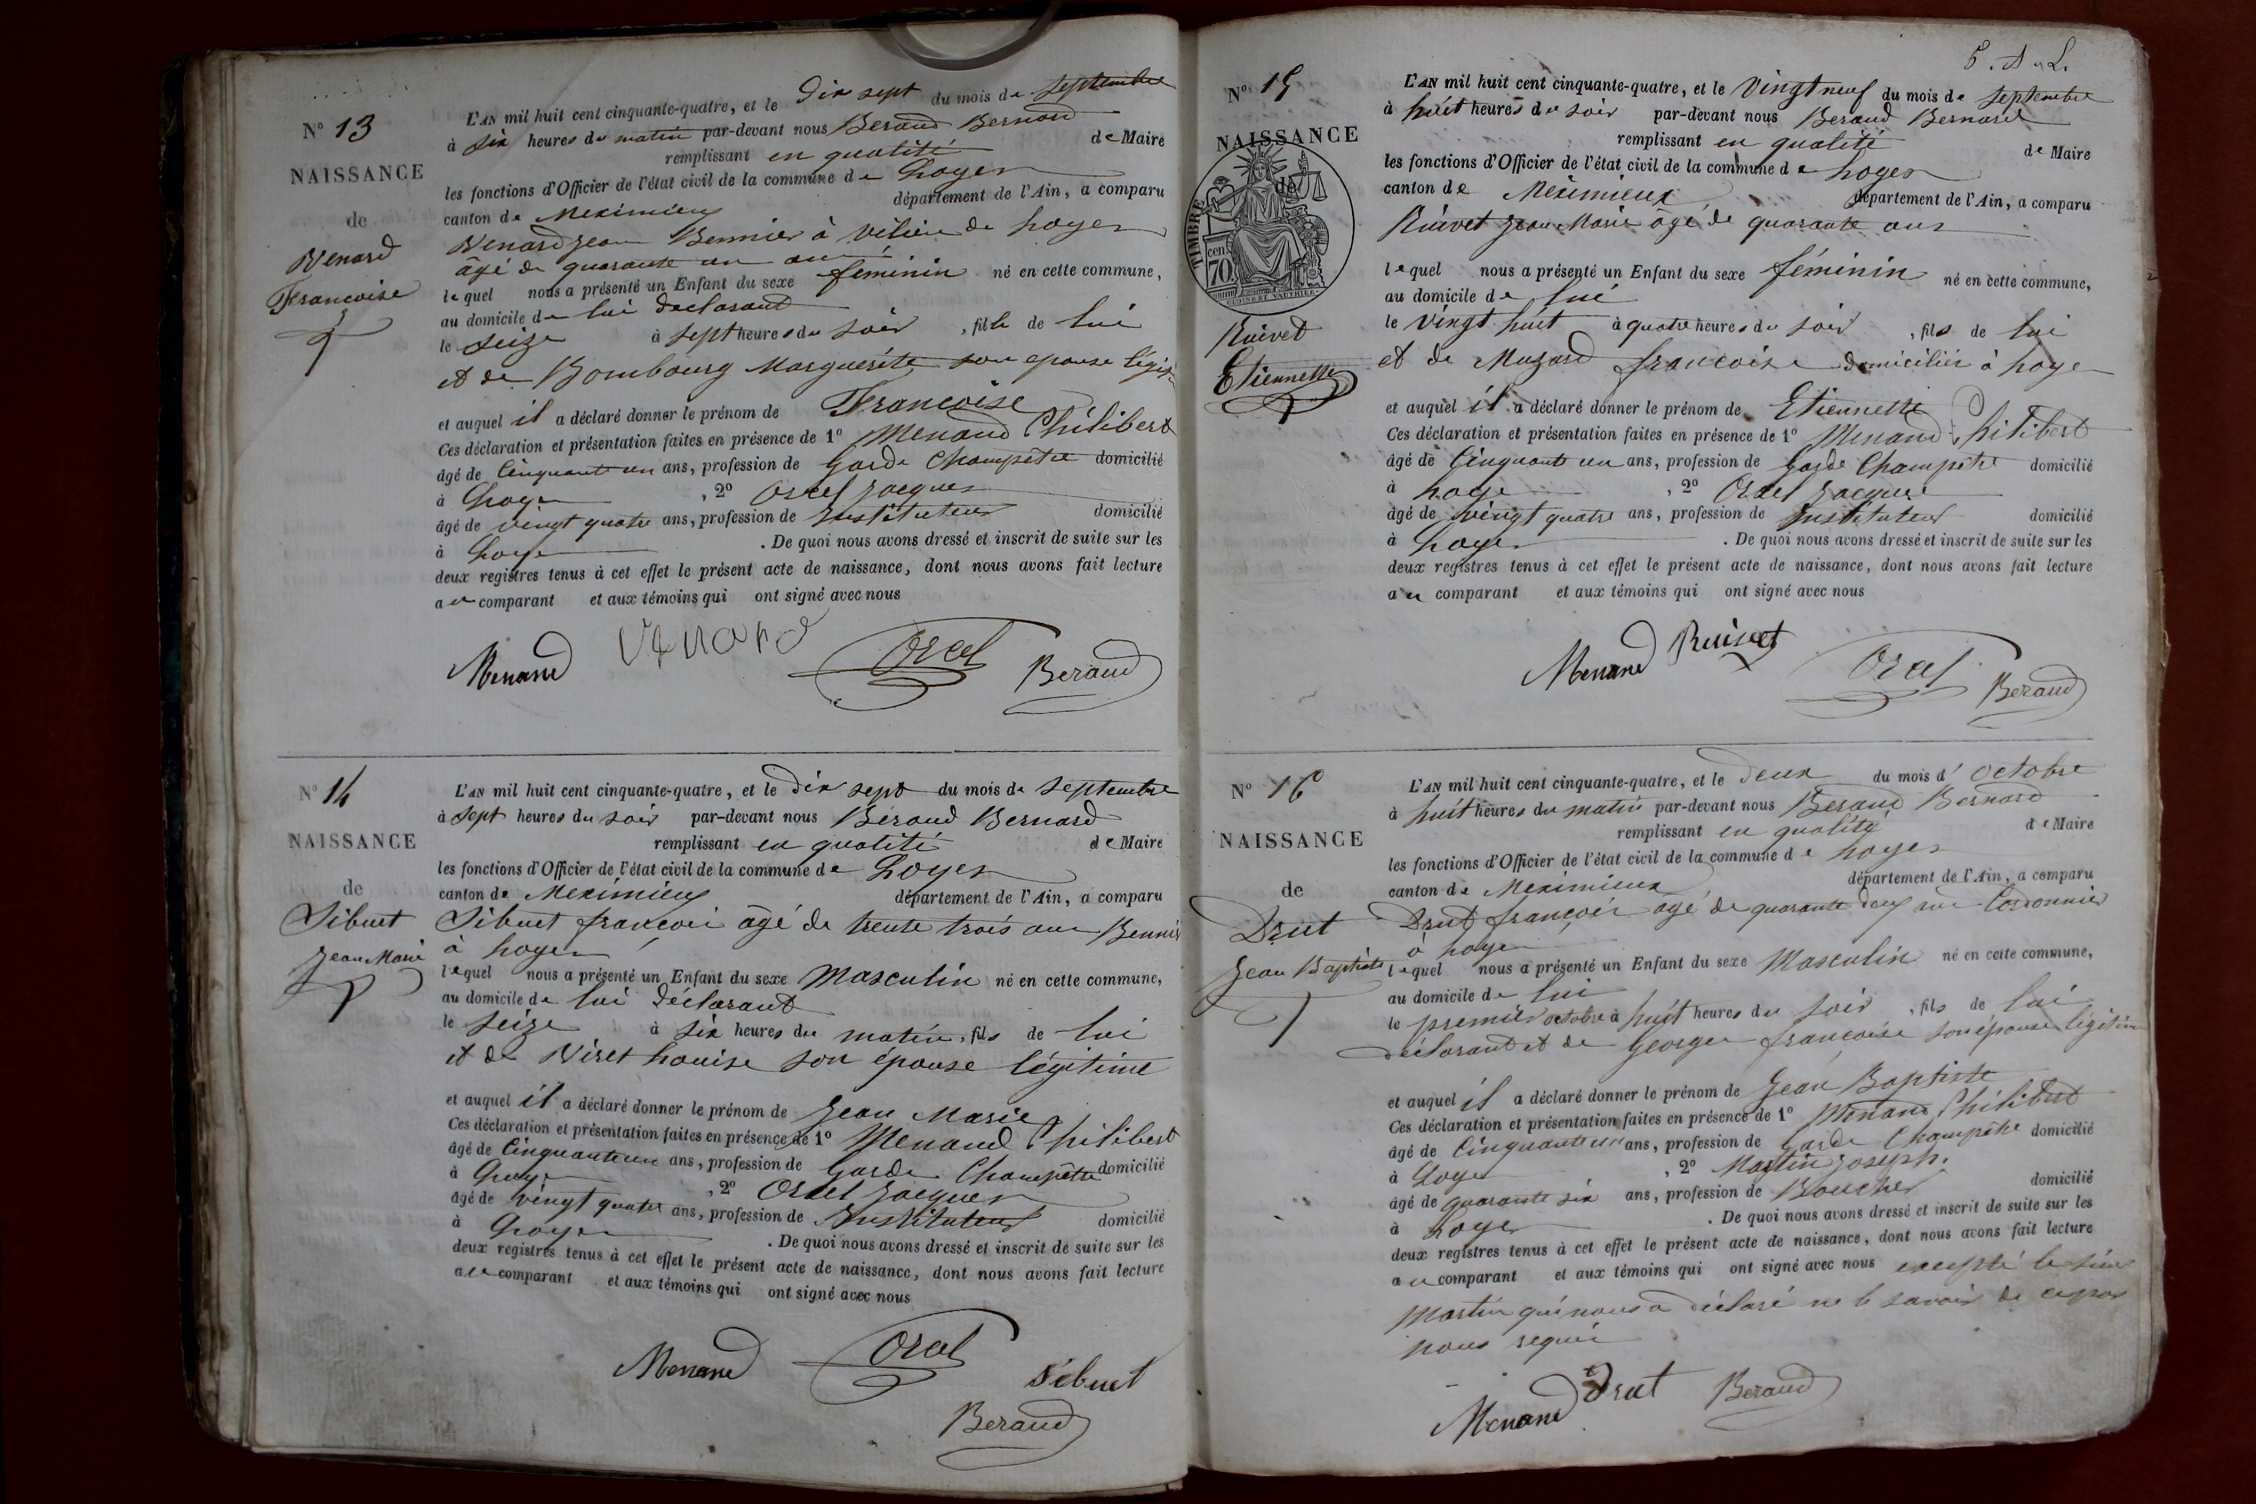 N° 13
NAISSANCE
de
Venard
Francoise
L'AN mil huit cent cinquante-quatre, et le dix sept du mois de septembre
à six heures du matin par-devant nous Beraud Bernard
remplissant en qualité de Maire
les fonctions d'Officier de l'état civil de la commune de Loyes
canton de Meximieux département de l'Ain, a comparu
Venard Jean à Vilieu de Loyes
âgé de quarante un ans
lequel nous a présenté un Enfant du sexe féminin né en cette commune,
au domicile de lui declarant
le seize à sept heures du soir, fille de lui
et de Bombourg Marguerite son epouse
et auquel il a déclaré donner le prénom de Francoise
Ces déclaration et présentation faites en présence de 1° Menand Philibert
âgé de Cinquante un ans, profession de Garde Champêtre domicilié
à Loyes, 2° Orcel Jacques
âgé de vingt quatre ans, profession de Instituteur domicilié
à Loyes. De quoi nous avons dressé et inscrit de suite sur les
deux registres tenus à cet effet le présent acte de naissance, dont nous avons fait lecture
au comparant et aux témoins qui ont signé avec nous
Menand Venard Orcel Beraud
N° 14
NAISSANCE
de
Sibuet
Jean Marie
L'AN mil huit cent cinquante-quatre, et le dix sept du mois de septembre
à sept heures du soir par-devant nous Beraud Bernard
remplissant en qualité de Maire
les fonctions d'Officier de l'état civil de la commune de Loyes
canton de Meximieux département de l'Ain, a comparu
Sibuet francois âgé de trente trois ans
à Loyes
lequel nous a présenté un Enfant du sexe Masculin né en cette commune,
au domicile de lui déclarant
le seize à six heures du matin, fils de lui
et de Viret Louise son épouse légitime
et auquel il a déclaré donner le prénom de Jean Marie
Ces déclaration et présentation faites en présence de 1° Menand Philibert
âgé de Cinquante un ans, profession de Garde Champêtre domicilié
à Loyes, 2° Orcel Jacques
âgé de vingt quatre ans, profession de Instituteur domicilié
à Loyes. De quoi nous avons dressé et inscrit de suite sur les
deux registres tenus à cet effet le présent acte de naissance, dont nous avons fait lecture
au comparant et aux témoins qui ont signé avec nous
Menand Orcel Sibuet
Beraud
N° 15
NAISSANCE
de
TIMBRE
70 cen
Ruivet
Etiennette
L'AN mil huit cent cinquante-quatre, et le vingt neuf du mois de septembre
à huit heures du soir par-devant nous Beraud Bernard
remplissant en qualité de Maire
les fonctions d'Officier de l'état civil de la commune de Loyes
canton de Meximieux département de l'Ain, a comparu
Ruivet Jean Marie âgé de quarante ans
lequel nous a présenté un Enfant du sexe féminin né en cette commune,
au domicile de lui
le vingt huit à quatre heures du soir, fils de lui
et de Mugard francoise domiciliés à Loyes
et auquel il a déclaré donner le prénom de Etiennette
Ces déclaration et présentation faites en présence de 1° Menand Philibert
âgé de Cinquante un ans, profession de Garde Champetre domicilié
à Loyes, 2° Orcel Jacques
âgé de vingt quatre ans, profession de Instituteur domicilié
à Loyes. De quoi nous avons dressé et inscrit de suite sur les
deux registres tenus à cet effet le présent acte de naissance, dont nous avons fait lecture
au comparant et aux témoins qui ont signé avec nous
Menand Ruivet Orcel Beraud
N° 16
NAISSANCE
de
Drut
Jean Baptiste
L'AN mil huit cent cinquante-quatre, et le deux du mois d'octobre
à huit heures du matin par-devant nous Beraud Bernard
remplissant en qualité de Maire
les fonctions d'Officier de l'état civil de la commune de Loyes
canton de Meximieux département de l'Ain, a comparu
Drut françois agé de quarante deux ans Cordonnier
à Loyes
lequel nous a présenté un Enfant du sexe Masculin né en cette commune,
au domicile de lui
le premier octobre à huit heures du soir, fils de lui
déclarant et de Georges francoise son épouse légitime
et auquel il a déclaré donner le prénom de Jean Baptiste
Ces déclaration et présentation faites en présence de 1° Menand Philibert
âgé de Cinquante un ans, profession de Garde Champêtre domicilié
à Loyes, 2° Martin Joseph.
âgé de quarante six ans, profession de Boucher domicilié
à Loyes. De quoi nous avons dressé et inscrit de suite sur les
deux registres tenus à cet effet le présent acte de naissance, dont nous avons fait lecture
au comparant et aux témoins qui ont signé avec nous excepté le sieur
Martin qui nous a déclaré ne le savoir de ce par
nous requis
Menand Drut Beraud